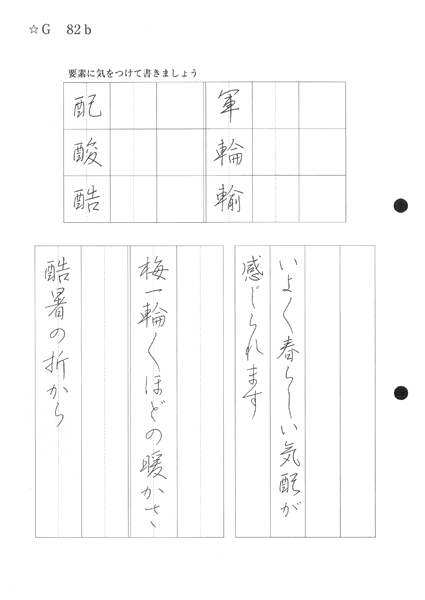 ☆G 82b
要素に気をつけて書きましょう
軍
輪
輸
配
酸
酷
いよ〱春らしい気配が
感じられます
梅一輪〱ほどの暖かさ
酷暑の折から